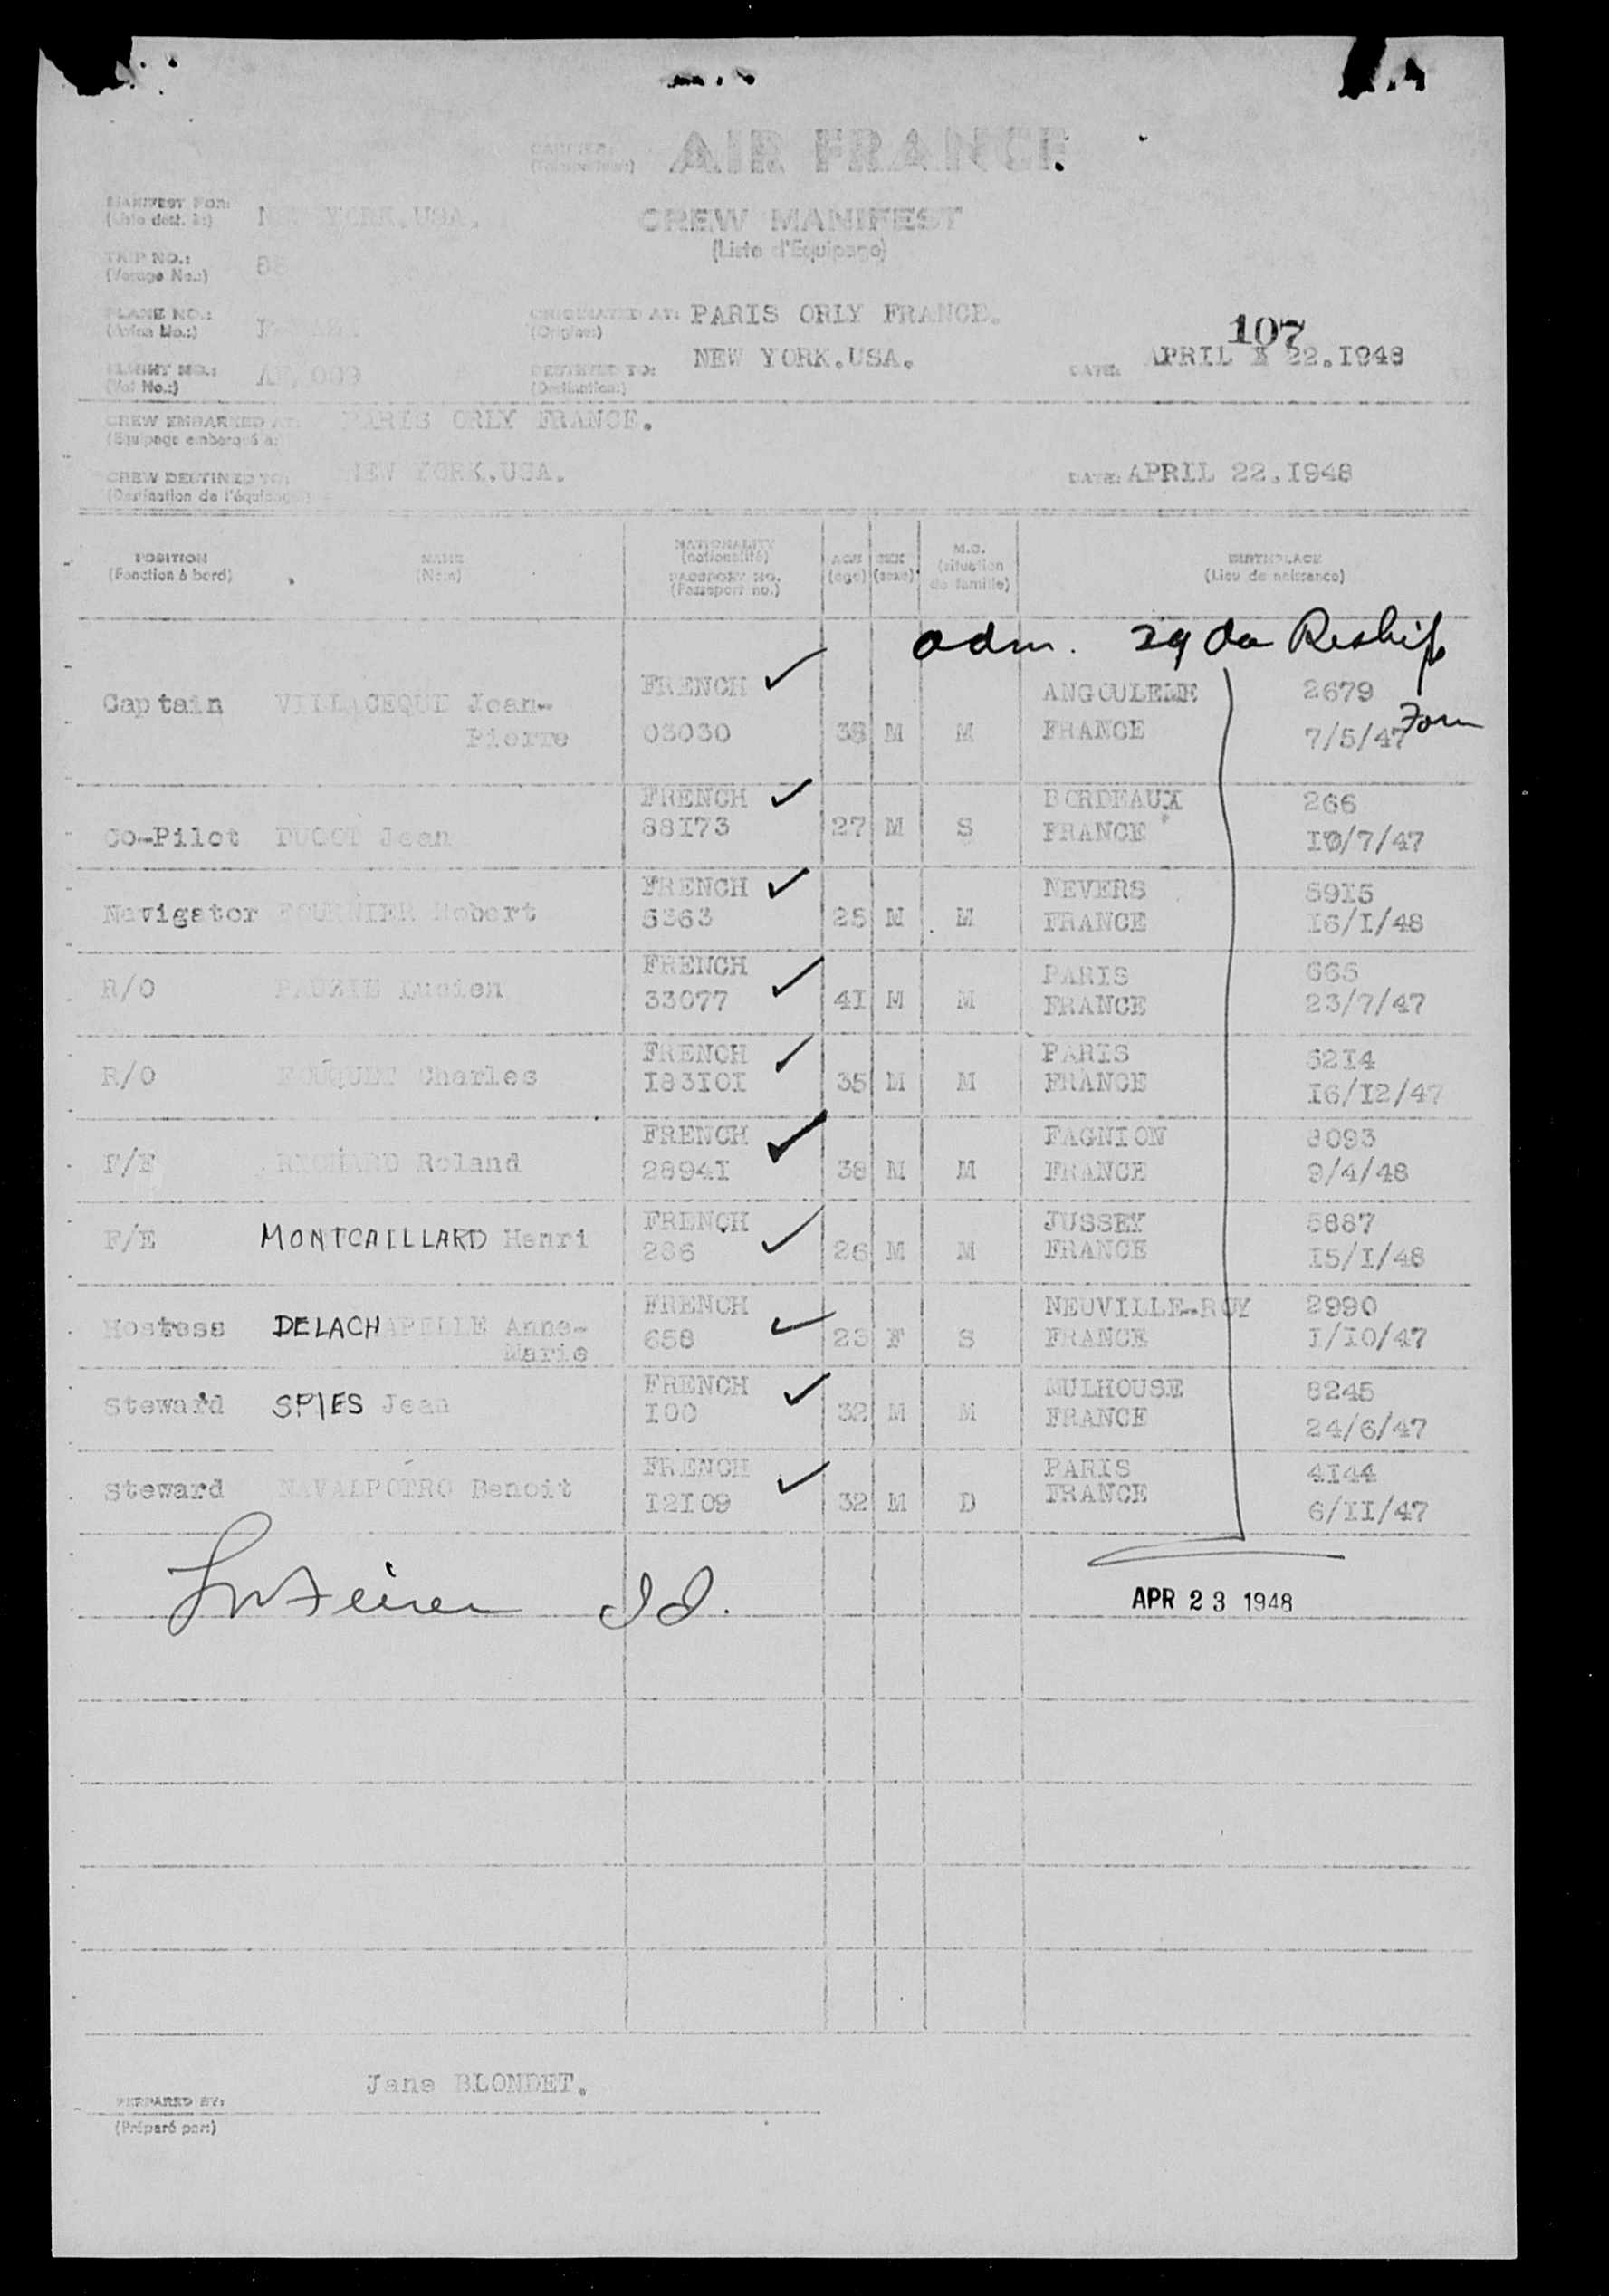 CARRIER: AIR FRANCE
MANIFEST FOR: YORK, USA. CREW MANIFEST
(Liste d'Equipage)
TRIP NO.:
(Voyage No.:)
PLANE NO.: ORIGINATED AT: PARIS ORLY FRANCE.
(Avion No.:) (Origine:)
107
FLIGHT NO.: AF, 009 DESTINED TO: NEW YORK.USA. DATE: APRIL 22.I948
(Vol No.:) (Destination:)
CREW EMBARKED AT: PARIS ORLY FRANCE.
(Equipage embarqué à:)
CREW DESTINED TO: NEW YORK.USA. DATE: APRIL 22.I948
(Destination de l'équipage:)
POSITION NAME NATIONALITY AGE SEX M.S. BIRTHPLACE
(Fonction à bord) (Nom) (nationalité) (age) (sexe) (situation de famille) (Lieu de naissance)
PASSPORT NO.
(Passeport no.)
adm. 29 da Reship
Form
Captain VILLACEQUE Jean- FRENCH ANGOULEME 2679
Pierre 03030 38 M M FRANCE 7/5/47
FRENCH BORDEAUX 266
Co-Pilot Jean 88I73 27 M S FRANCE I0/7/47
FRENCH NEVERS 5915
Navigator FOURNIER Robert 5363 25 M M FRANCE I6/I/48
FRENCH PARIS 665
R/O PAUZIE Lucien 33077 4I M M FRANCE 23/7/47
FRENCH PARIS 52I4
R/O FOUQUET Charles I83I0I 35 M M FRANCE I6/I2/47
FRENCH FAGNION 8093
F/E RICHARD Roland 2894I 38 M M FRANCE 9/4/48
FRENCH JUSSEY 5887
F/E MONTCAILLARD Henri 286 26 M M FRANCE I5/I/48
FRENCH NEUVILLE-ROY 2990
Hostess DELACHAPELLE Anne- 658 23 F S FRANCE I/I0/47
Marie
FRENCH MULHOUSE 8245
Steward SPIES Jean I00 32 M M FRANCE 24/6/47
FRENCH PARIS 4I44
Steward NAVALPOTRO Benoit I2I09 32 M D FRANCE 6/II/47
APR 23 1948
Jane BLONDET.
PREPARED BY:
(Préparé par:)